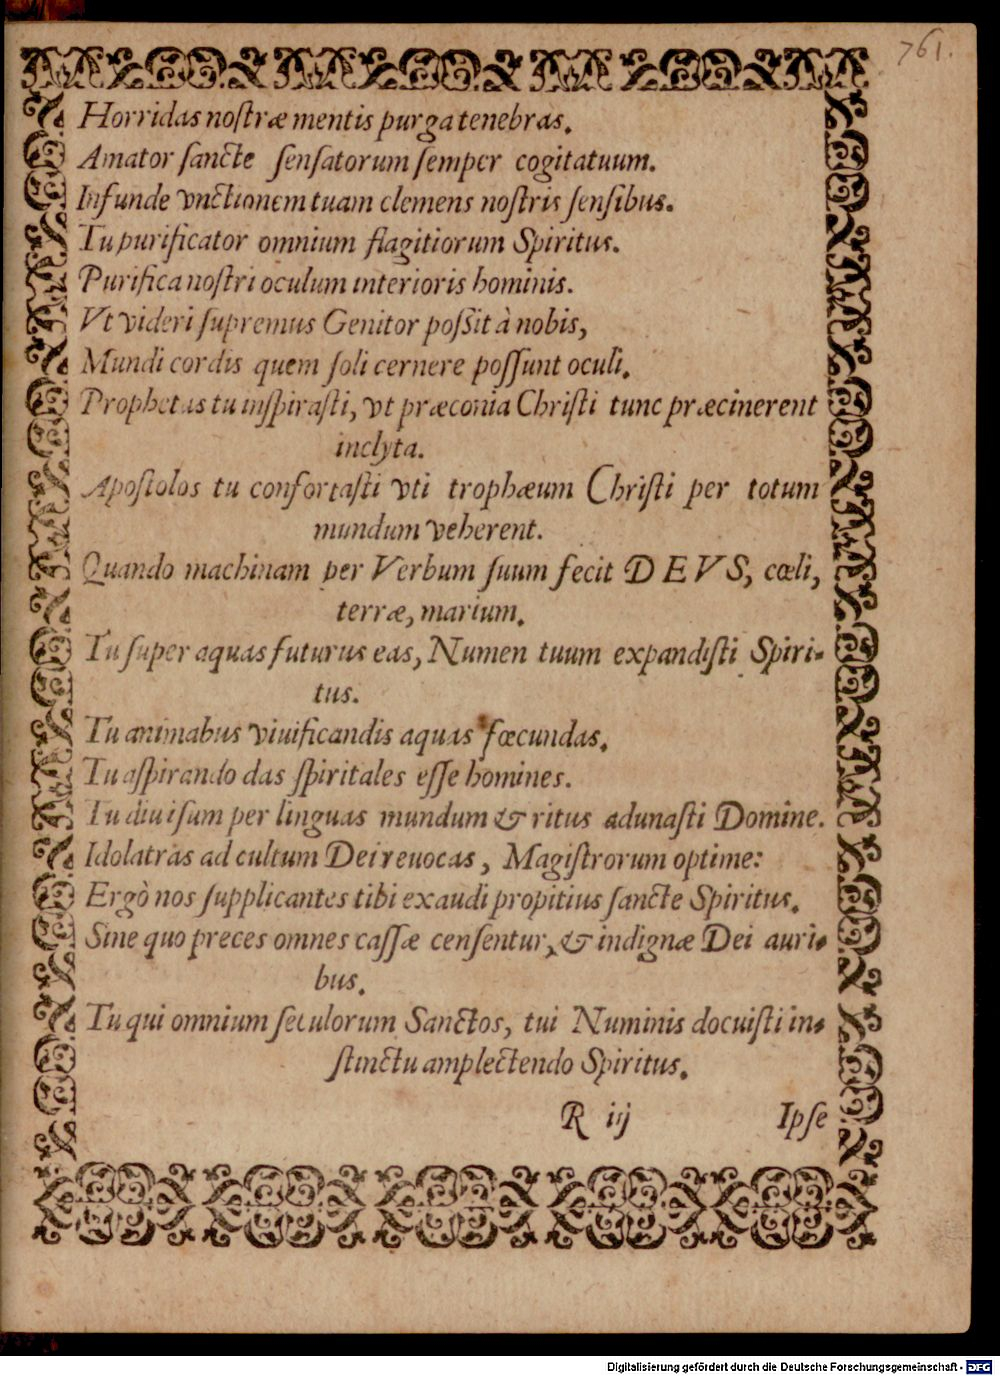 761.
Horridas noſtræ mentis purga tenebras.
Amator ſancte ſenſatorum ſemper cogitatuum.
Infunde vnctionem tuam clemens noſtris ſenſibus.
Tu purificator omnium flagitiorum Spiritus.
Purifica noſtri oculum interioris hominis.
Vt videri ſupremus Genitor poſſit à nobis,
Mundi cordis quem ſoli cernere poſſunt oculi.
Prophetas tu inſpiraſti, vt præconia Chriſti tunc præcinerent
inclyta.
Apoſtolos tu confortaſti vti trophæum Chriſti per totum
mundum veherent.
Quando machinam per Verbum ſuum fecit DEVS, cœli,
terræ, marium.
Tu ſuper aquas futurus eas, Numen tuum expandiſti Spiri-
tus.
Tu animabus viuificandis aquas fœcundas.
Tu aſpirando das ſpiritales eſſe homines.
Tu diuiſum per linguas mundum & ritus adunaſti Domine.
Idolatras ad cultum Dei reuocas, Magiſtrorum optime:
Ergò nos ſupplicantes tibi exaudi propitius ſancte Spiritus.
Sine quo preces omnes caſſæ cenſentur, & indignæ Dei auri-
bus.
Tu qui omnium ſeculorum Sanctos, tui Numinis docuiſti in-
ſtinctu amplectendo Spiritus.
R iij Ipſe
Digitalisierung gefördert durch die Deutsche Forschungsgemeinschaft - DFG